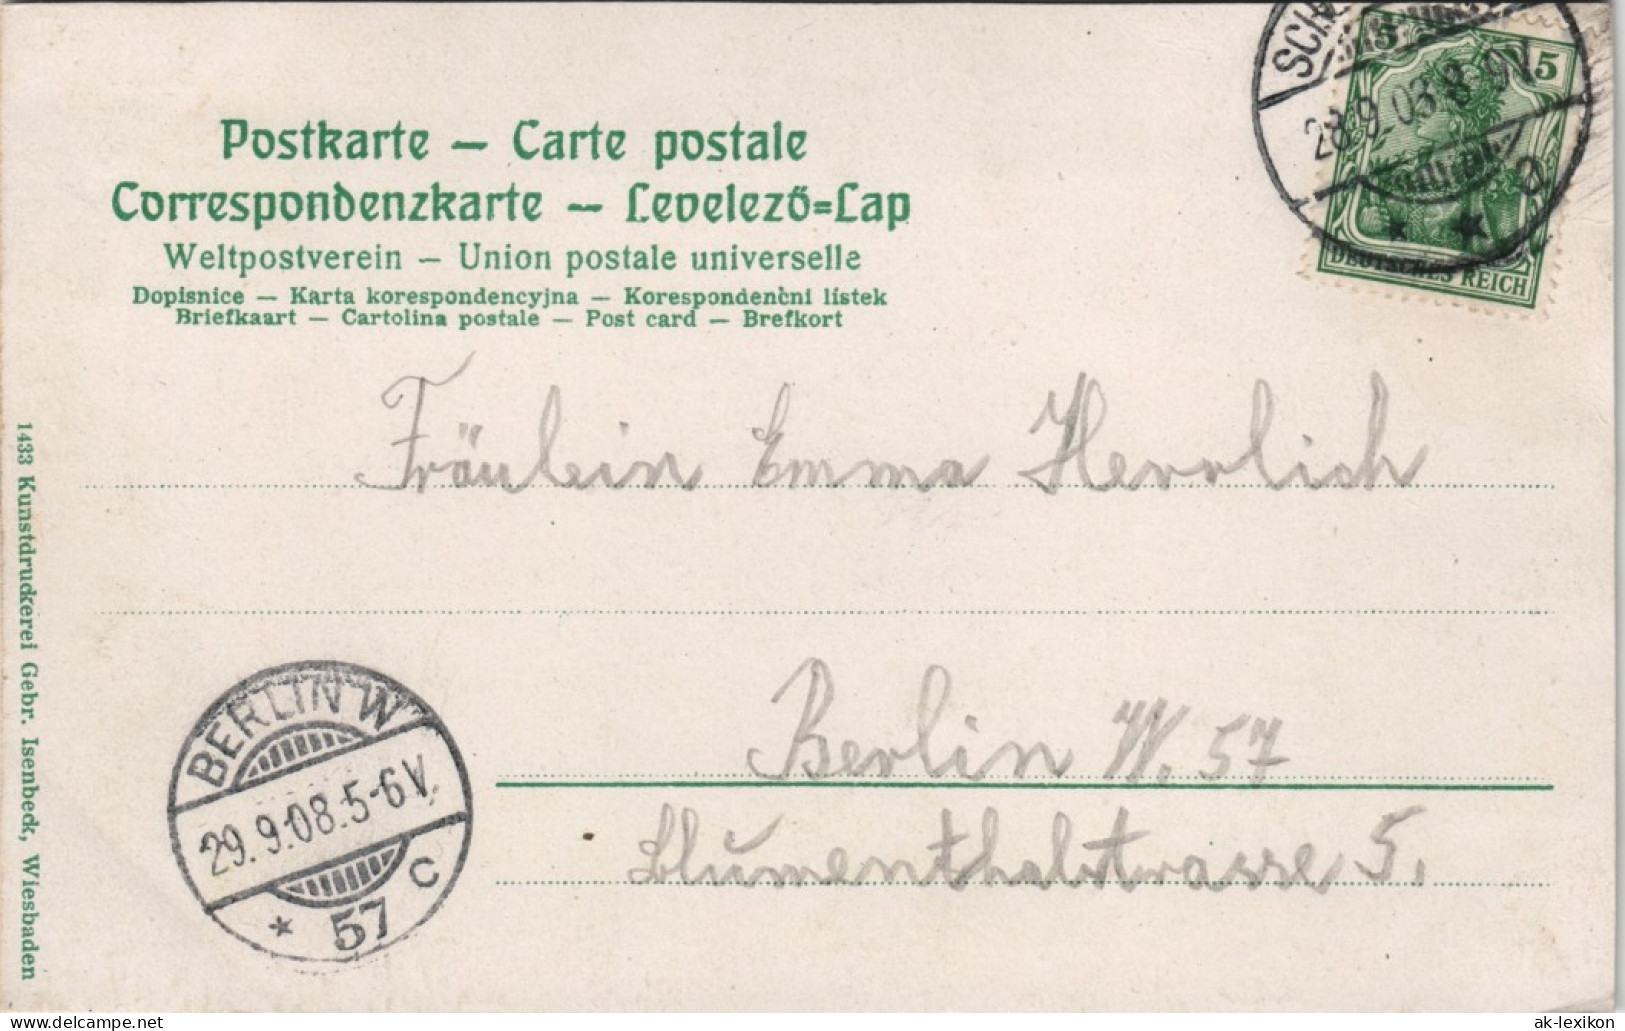 Postkarte — Carte postale
Correspondenzkarte — Levelező=Lap
Weltpostverein — Union postale universelle
Dopisnice — Karta korespondencyjna — Korespondenčni listek
Briefkaart — Cartolina postale — Post card — Brefkort
5 5
28.9.03.8-9V.
d
DEUTSCHES REICH
Fräulein Emma Herrlich
Berlin W. 57
Blumenthalstrasse 5.
BERLIN W
29.9.08.5-6V.
* 57 c
1433 Kunstdruckerei Gebr. Isenbeck, Wiesbaden
ak-lexikon